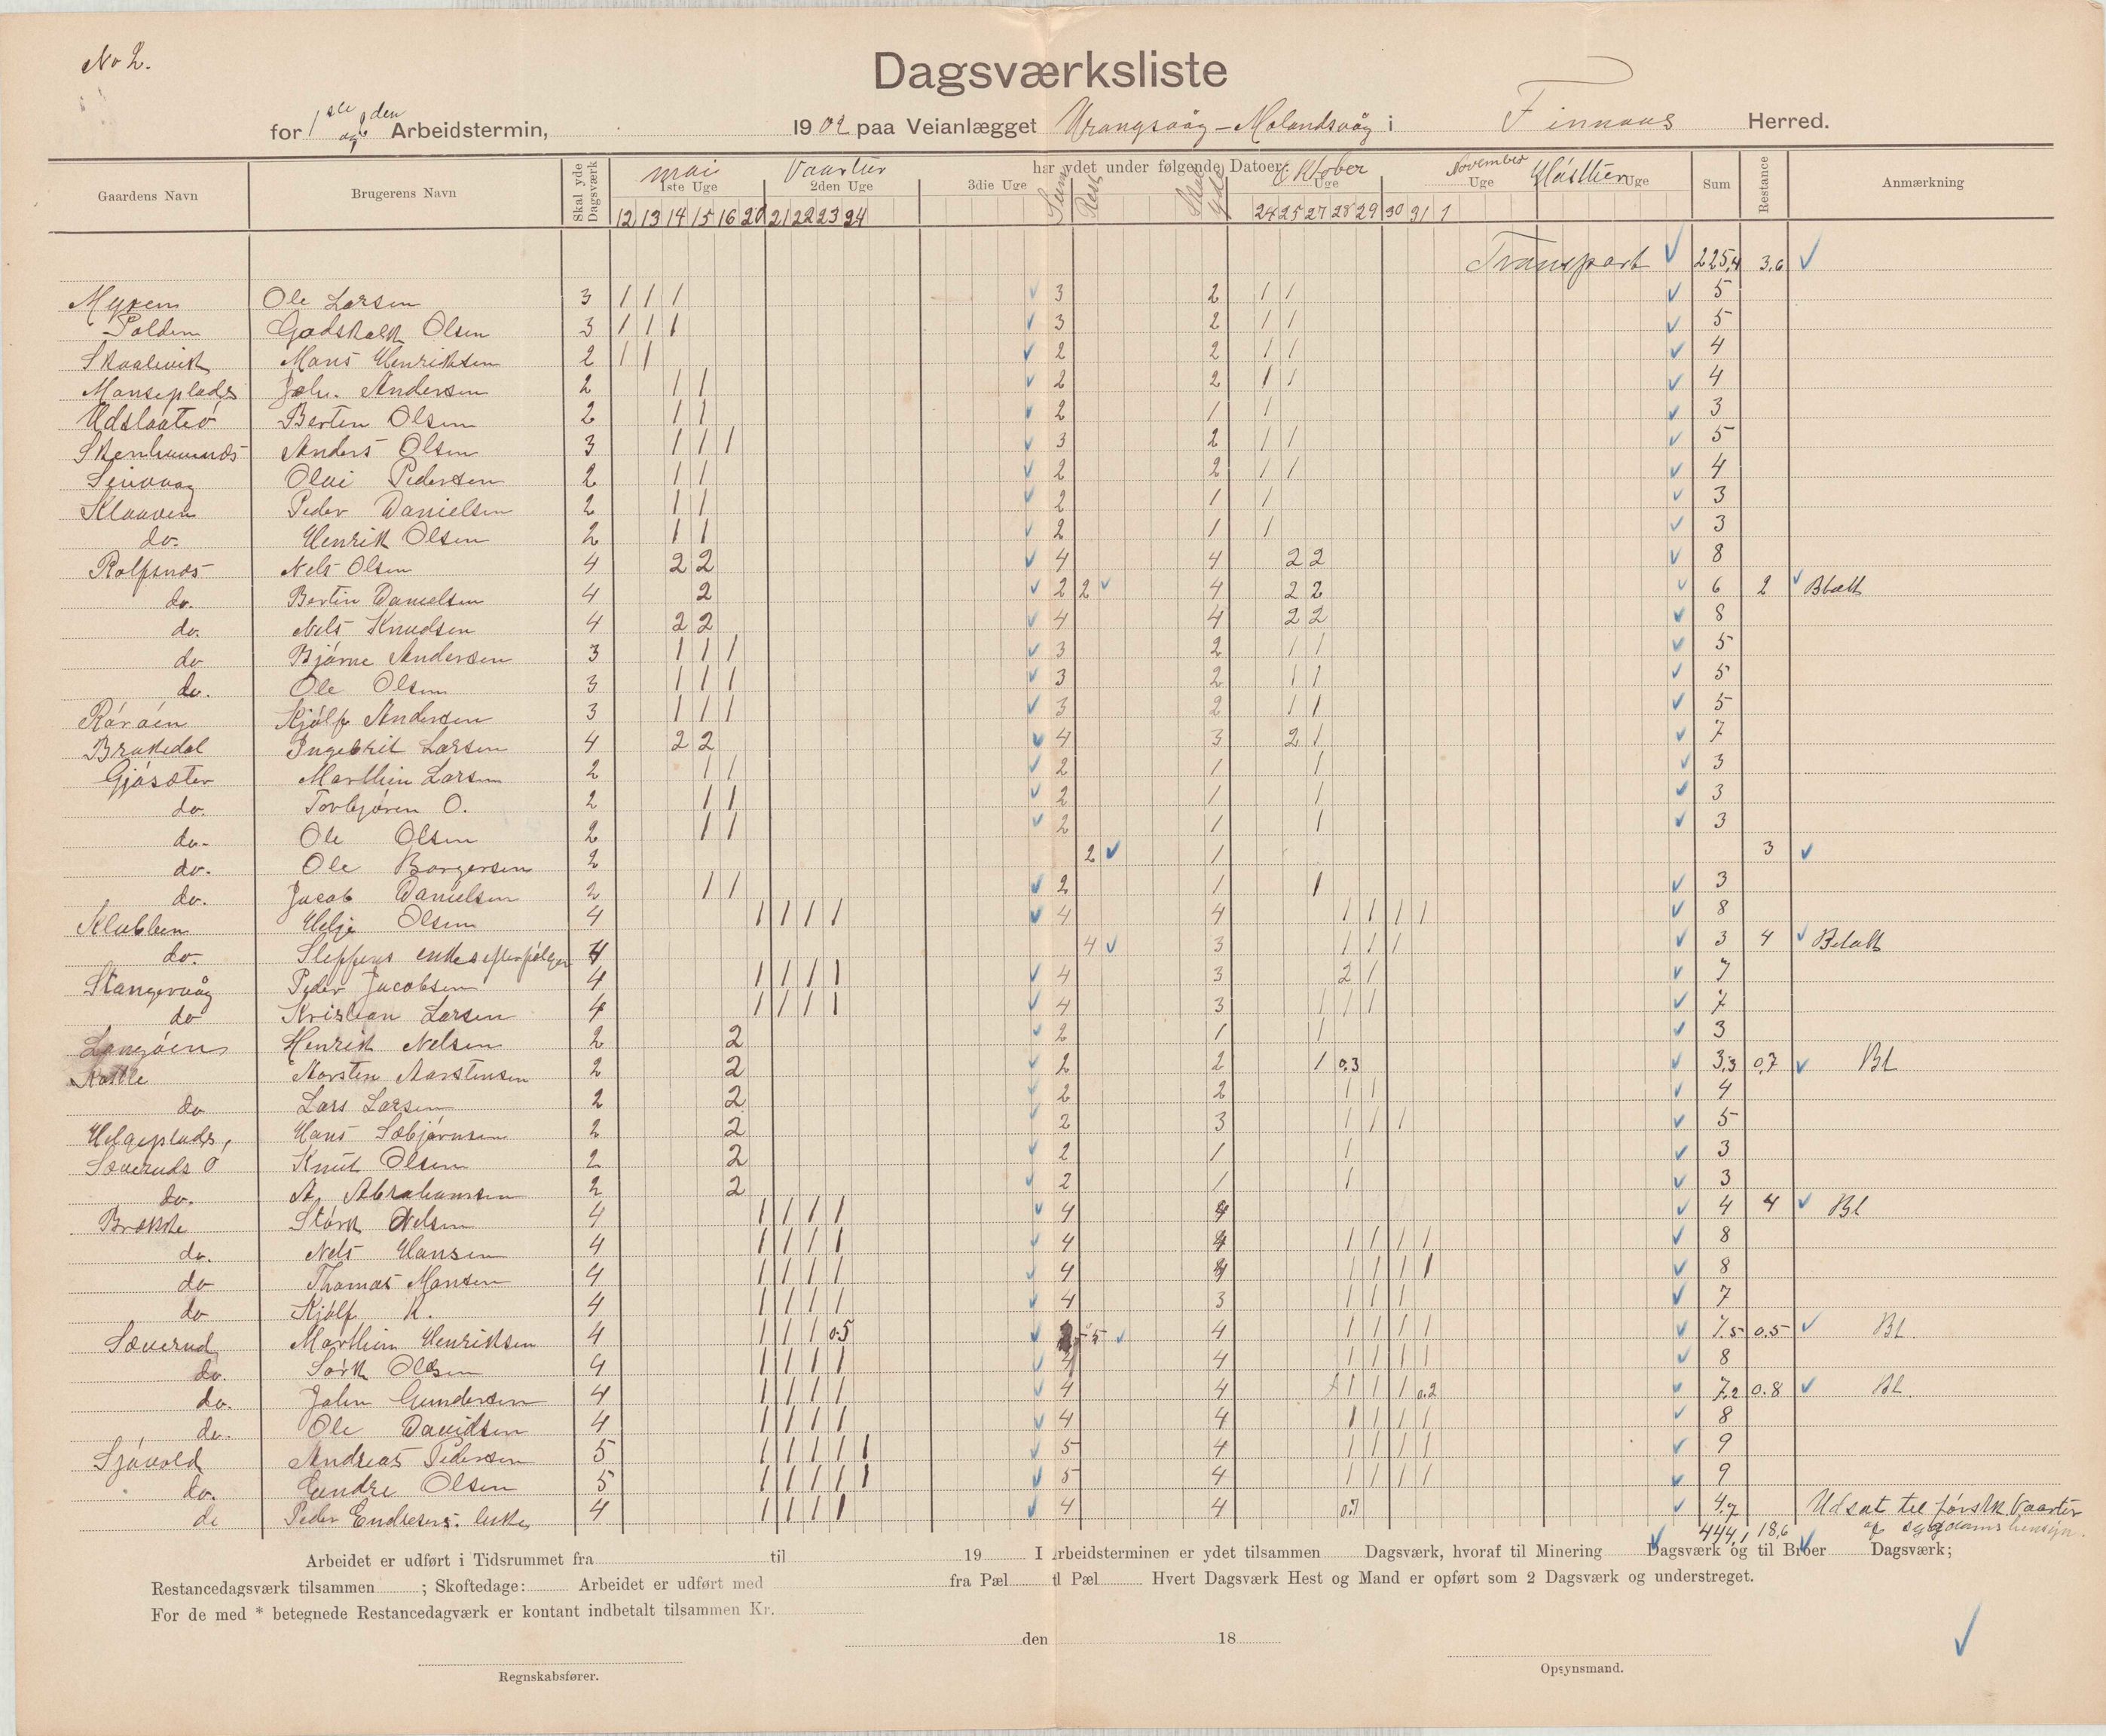 No 2.
Dagsværksliste
for 1ste og 2den Arbeidstermin, 1902 paa Veianlægget Urangsvåg - Molandsvåg i Finnaas Herred.
Gaardens Navn Brugerens Navn Skal yde Dagsværk har ydet under følgende Datoer Sum Restance Anmærkning
mai Vaartur Oktober November Høsttur
1ste Uge 2den Uge 3die Uge Sum Rest Skal yde Uge Uge Uge
12 13 14 15 16 20 21 22 23 24 24 25 27 28 29 30 31 1
Transport 225,4 3,6
Ole Larsen 3 1 1 1 3 2 1 1 5
Polden Godskalk Olsen 3 1 1 1 3 2 1 1 5
Skaalevik Mons Henriksen 2 1 1 2 2 1 1 4
Monseplads Joh. Andersen 2 1 1 2 2 1 1 4
Udslaatø Berten Olsen 2 1 1 2 1 1 3
Anders Olsen 3 1 1 1 3 2 1 1 5
Olai Pedersen 2 1 1 2 2 1 1 4
Klaaven Peder Danielsen 2 1 1 2 1 1 3
do. Henrik Olsen 2 1 1 2 1 1 3
Rolfsnæs Nels Olsen 4 2 2 4 4 2 2 8
do. Bertin Danielsen 4 2 2 2 4 2 2 6 2 Btalt
do. Nels Knudsen 4 2 2 4 4 2 2 8
do Bjørne Andersen 3 1 1 1 3 2 1 1 5
do. Ole Olsen 3 1 1 1 3 2 1 1 5
Røråen Kjølf Andersen 3 1 1 1 3 2 1 1 5
Brakedal Ingebrit Larsen 4 2 2 4 3 2 1 7
Gjøsæter Marthin Larsen 2 1 1 2 1 1 3
do. Torbjøren O. 2 1 1 2 1 1 3
do. Ole Olsen 2 1 1 2 1 1 3
do. Ole Borgersen 2 2 1 3
do. Jacob Danielsen 2 1 1 2 1 1 3
Klubben Helje Olsen 4 1 1 1 1 4 4 1 1 1 1 8
do. Steffens enkes efterfølger 4 4 3 1 1 1 3 4 Betalt
Stangervåg Peder Jacobsen 4 1 1 1 1 4 3 2 1 7
do Kristian Larsen 4 1 1 1 1 4 3 1 1 1 7
Langøen Henrik Nelsen 2 2 2 1 1 3
Aarsten Aarstensen 2 2 2 2 1 0,3 3,3 0,7 Bl
do Lars Larsen 2 2 2 2 1 1 4
Helgeplads, Hans Sæbjørnsen 2 2 2 3 1 1 1 5
Sæveruds Ø Knut Olsen 2 2 2 1 1 3
do. A. Abrahamsen 2 2 2 1 1 3
Brække Størk Nelsen 4 1 1 1 1 4 4 4 4 Bl
do. Nels Hansen 4 1 1 1 1 4 4 1 1 1 1 8
do Thomas Monsen 4 1 1 1 1 4 4 1 1 1 1 8
do Kjølf K. 4 1 1 1 1 4 3 1 1 1 7
Sæverud Marthin Henriksen 4 1 1 1 0.5 4 1 1 1 1 7.5 0.5 Bl.
do. Størk Olsen 4 1 1 1 1 4 4 1 1 1 1 8
do. John Gundersen 4 1 1 1 1 4 4 1 1 1 1 0.2 7,2 0.8 Bl.
do. Ole Davidsen 4 1 1 1 1 4 4 1 1 1 1 8
Sjøvold Andreas Pedersen 5 1 1 1 1 1 5 4 1 1 1 1 9
do. Endre Olsen 5 1 1 1 1 1 5 4 1 1 1 1 9
do Peder Endresens enke 4 1 1 1 1 4 4 0.7 4.7 Udsat til først k. Vaartur
444,1 18,6 af sygdoms hensyn.
Arbeidet er udført i Tidsrummet fra til 19 I Arbeidsterminen er ydet tilsammen Dagsværk, hvoraf til Minering Dagsværk og til Broer Dagsværk;
Restancedagsværk tilsammen ; Skoftedage: Arbeidet er udført med fra Pæl til Pæl Hvert Dagsværk Hest og Mand er opført som 2 Dagsværk og understreget.
For de med * betegnede Restancedagværk er kontant indbetalt tilsammen Kr.
den 18
Regnskabsfører. Opsynsmand.